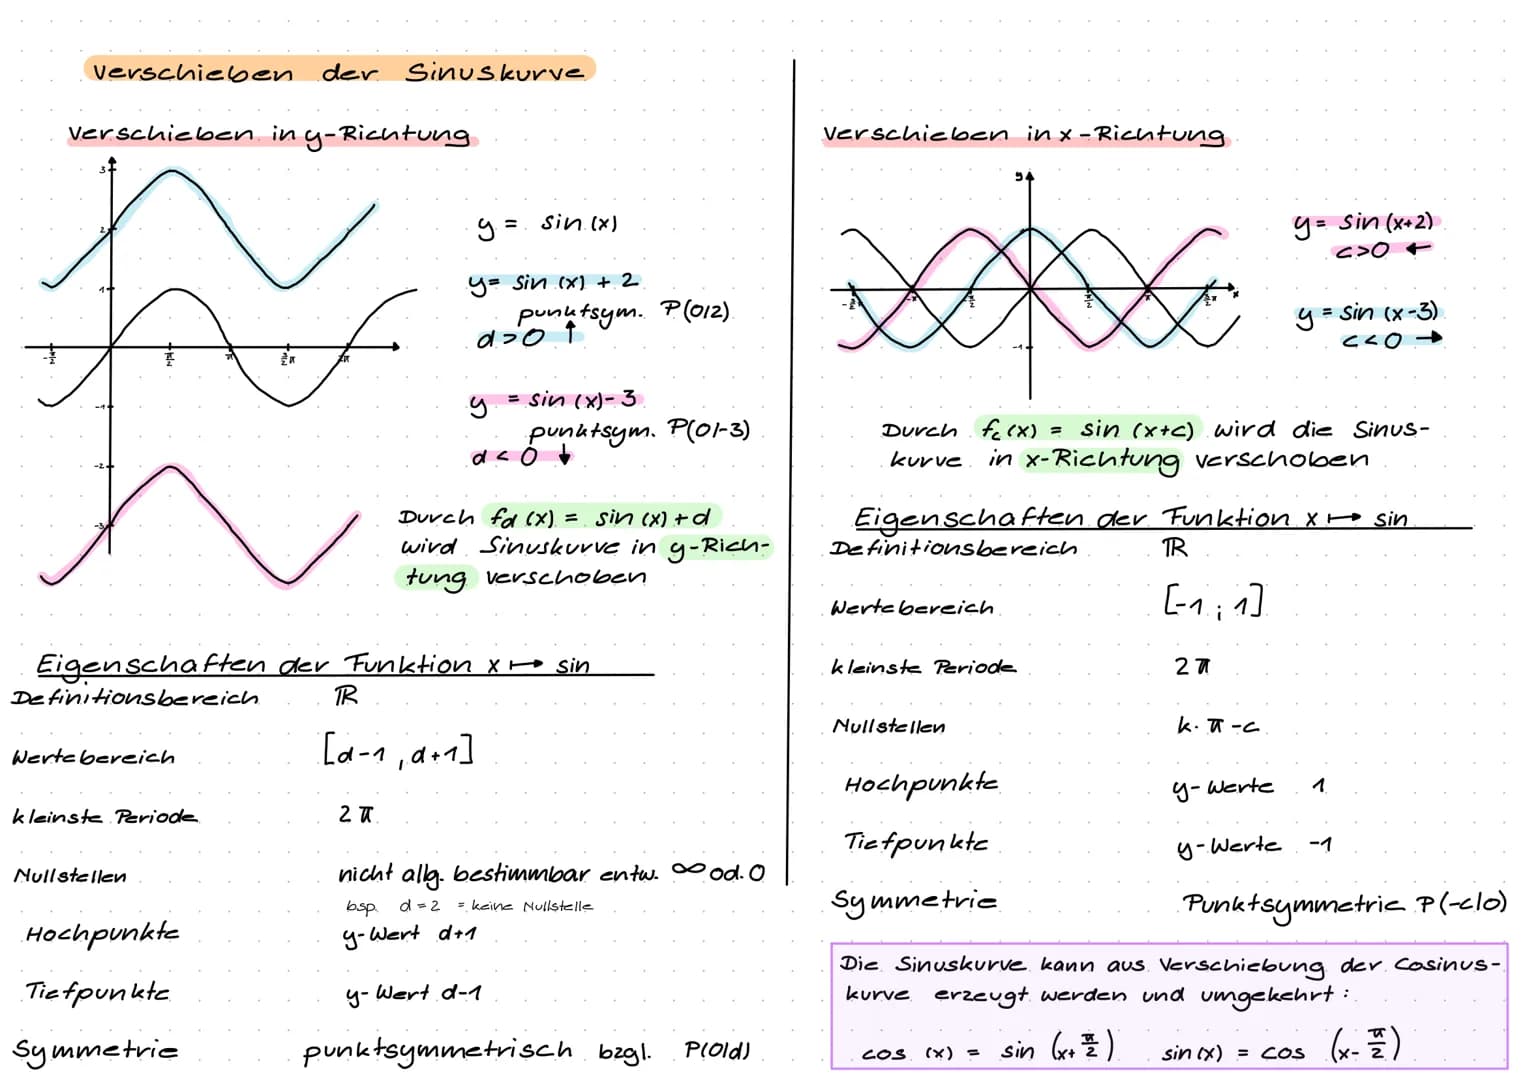 Verschieben der Sinuskurve
Verschieben in y-Richtung
3
2
1
-π/2
π/2
π
3/2 π
2π
-1
-2
-3
y = sin (x)
y = sin (x) + 2
punktsym. P(0|2)
d > 0 ↑
y = sin (x) - 3
punktsym. P(0|-3)
d < 0 ↓
Durch fd (x) = sin (x) + d
wird Sinuskurve in y-Rich-
tung verschoben
Eigenschaften der Funktion x ↦ sin
Definitionsbereich ℝ
Wertebereich [d-1 , d+1]
kleinste Periode 2 π
Nullstellen nicht allg. bestimmbar entw. ∞ od. 0
bsp. d = 2 = keine Nullstelle
Hochpunkte y-Wert d+1
Tiefpunkte y-Wert d-1
Symmetrie punktsymmetrisch bzgl. P(0|d)
Verschieben in x-Richtung
y
-π
-π/2
π/2
π
3/2 π
x
-1
y = sin (x+2)
c>0 ←
y = sin (x-3)
c<0 →
Durch fc (x) = sin (x+c) wird die Sinus-
kurve in x-Richtung verschoben
Eigenschaften der Funktion x ↦ sin
Definitionsbereich ℝ
Wertebereich [-1 ; 1]
kleinste Periode 2 π
Nullstellen k · π - c
Hochpunkte y-Werte 1
Tiefpunkte y-Werte -1
Symmetrie Punktsymmetrie P(-c|0)
Die Sinuskurve kann aus Verschiebung der Cosinus-
kurve erzeugt werden und umgekehrt :
cos (x) = sin (x+ π/2) sin (x) = cos (x- π/2)